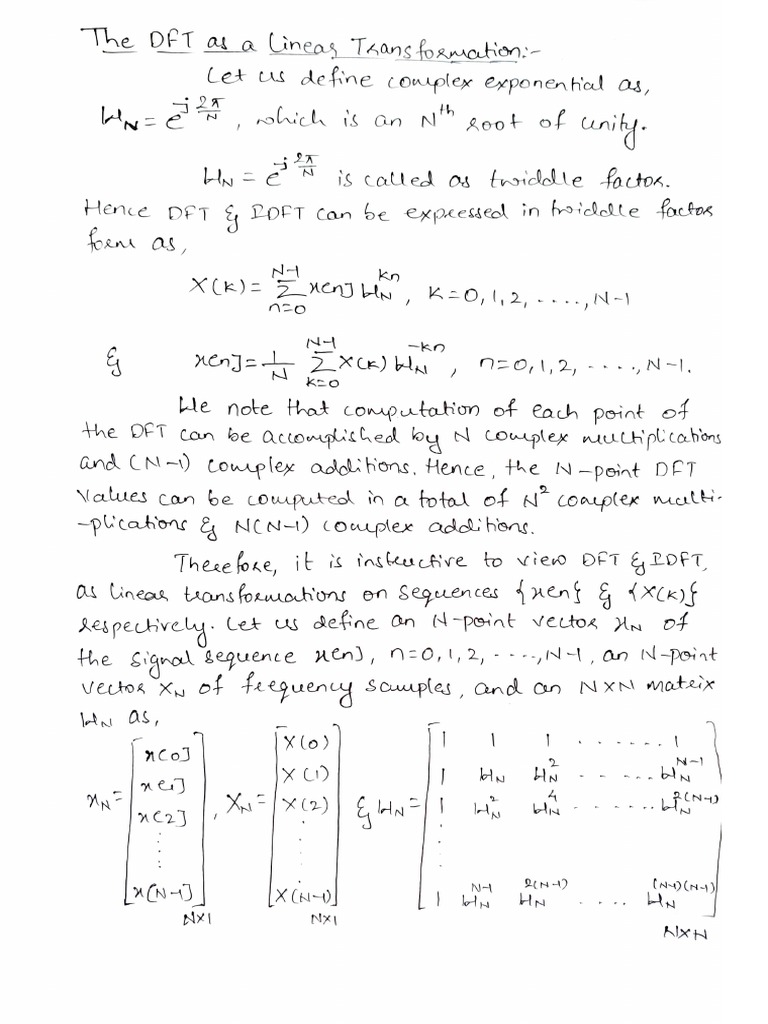 The DFT as a Linear Transformation:-
Let us define complex exponential as,
W_N = e^{-j 2π/N}, which is an N^th root of unity.
W_N = e^{-j 2π/N} is called as twiddle factor.
Hence DFT & IDFT can be expressed in twiddle factor
form as,
X(k) = Σ_{n=0}^{N-1} x[n] W_N^{kn}, k=0,1,2,....,N-1
& x[n] = 1/N Σ_{k=0}^{N-1} X(k) W_N^{-kn}, n=0,1,2,....,N-1.
We note that computation of each point of
the DFT can be accomplished by N complex multiplications
and (N-1) complex additions. Hence, the N-point DFT
values can be computed in a total of N^2 complex multi-
-plications & N(N-1) complex additions.
Therefore, it is instructive to view DFT & IDFT,
as linear transformations on sequences {x[n]} & {X(k)}
respectively. Let us define an N-point vector x_N of
the signal sequence x[n], n=0,1,2,....,N-1, an N-point
vector X_N of frequency samples, and an N×N matrix
W_N as,
x_N = [x[0] x[1] x[2] ⋮ x[N-1]]_{N×1}, X_N = [X(0) X(1) X(2) ⋮ X(N-1)]_{N×1} & W_N = [1 1 1 ...... 1
1 W_N W_N^2 ..... W_N^{N-1}
1 W_N^2 W_N^4 ...... W_N^{2(N-1)}
⋮
1 W_N^{N-1} W_N^{2(N-1)} .... W_N^{(N-1)(N-1)}]_{N×N}